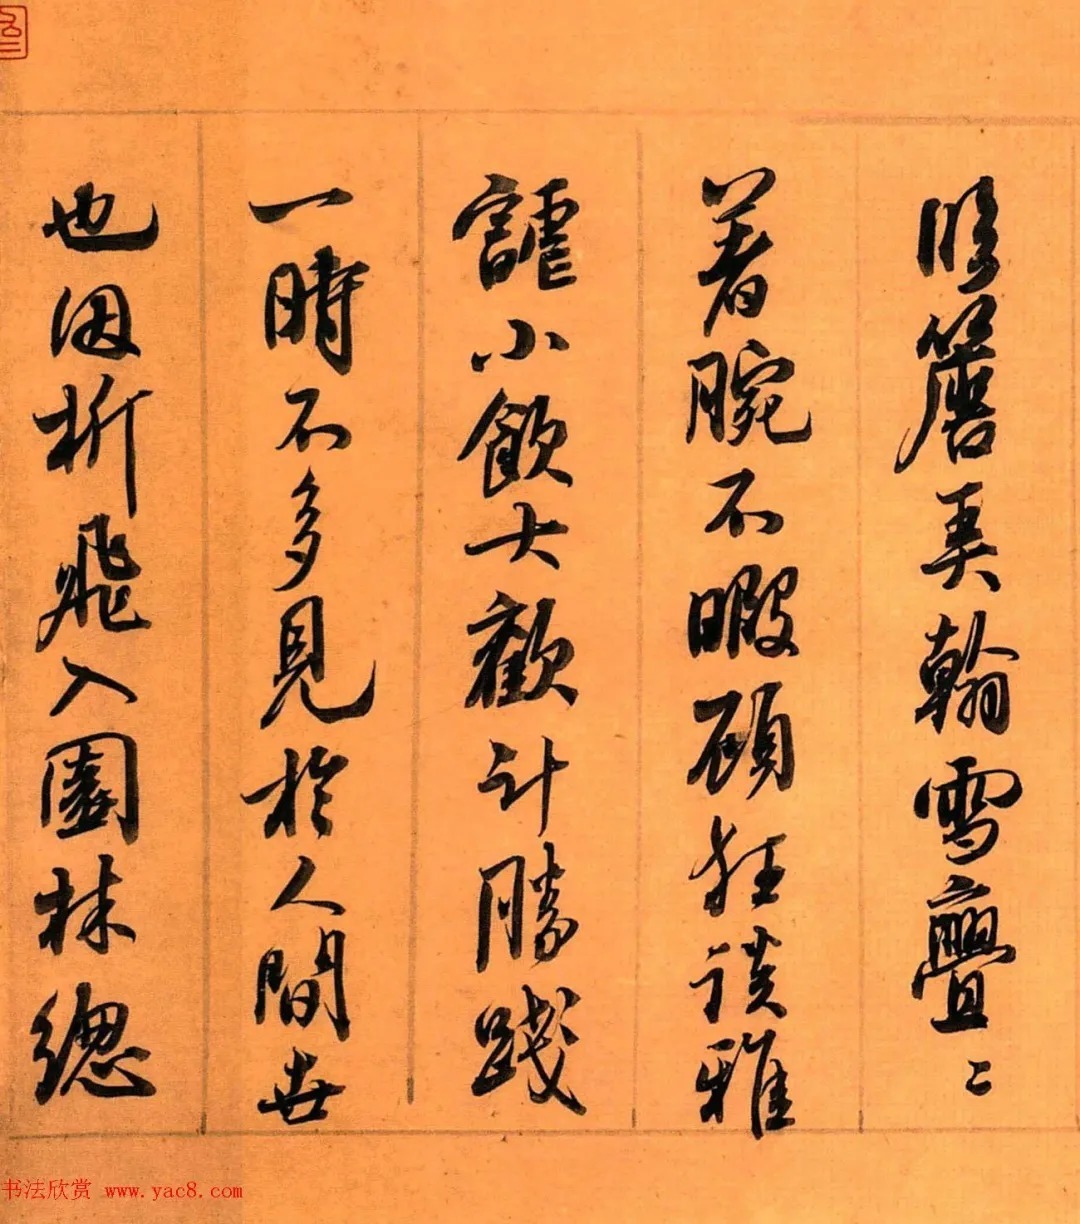 修簷弄翰雪亹〻
著腕不暇顧狂談雅
謔小飲大歡計勝踐
一時不多見於人間世
也因析飛入園林總
书法欣赏 www.yac8.com